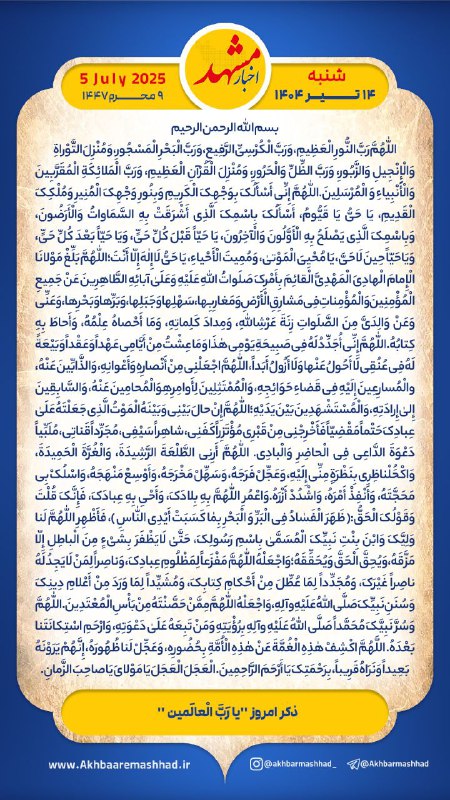 اخبار مشهد
شنبه
۱۴ تـــیـــر ۱۴۰۴
5 July 2025
۹ محـرم ۱۴۴۷
بسم الله الرحمن الرحیم
اَللّٰهُمَّ رَبَّ النُّورِ الْعَظِیمِ، وَرَبَّ الْکُرْسِیِّ الرَّفِیعِ، وَرَبَّ الْبَحْرِ الْمَسْجُورِ، وَمُنْزِلَ التَّوْراةِ
وَالْإِنْجِیلِ وَالزَّبُورِ وَرَبَّ الظِّلِّ وَالْحَرُورِ، وَمُنْزِلَ الْقُرْآنِ الْعَظِیمِ، وَرَبَّ الْمَلائِکَةِ الْمُقَرَّبِینَ
وَالْأَنْبِیاءِ وَالْمُرْسَلِینَ. اللّٰهُمَّ إِنِّی أَسْأَلُکَ بِوَجْهِکَ الْکَرِیمِ وَبِنُورِ وَجْهِکَ الْمُنِیرِ وَمُلْکِکَ
الْقَدِیمِ، یَا حَیُّ یَا قَیُّومُ، أَسْأَلُکَ بِاسْمِکَ الَّذِی أَشْرَقَتْ بِهِ السَّمَاوَاتُ وَالْأَرَضُونَ،
وَبِاسْمِکَ الَّذِی یَصْلَحُ بِهِ الْأَوَّلُونَ وَالْآخِرُونَ، یَا حَیّاً قَبْلَ کُلِّ حَیٍّ، وَیَا حَیّاً بَعْدَ کُلِّ حَیٍّ،
وَیَا حَیّاً حِینَ لَا حَیَّ، یَا مُحْیِیَ الْمَوْتیٰ، وَمُمِیتَ الْأَحْیاءِ، یَا حَیُّ لَاإِلٰهَ إِلّا أَنْتَ؛ اللّٰهُمَّ بَلِّغْ مَوْلانَا
الْإِمامَ الْهادِیَ الْمَهْدِیَّ الْقائِمَ بِأَمْرِکَ صَلَواتُ اللّٰهِ عَلَیْهِ وَعَلَیٰ آبائِهِ الطَّاهِرِینَ عَنْ جَمِیعِ
الْمُؤْمِنِینَ وَالْمُؤْمِناتِ فِی مَشارِقِ الْأَرْضِ وَمَغارِبِها، سَهْلِها وَجَبَلِها، وَبَرِّها وَبَحْرِها، وَعَنِّی
وَعَنْ وَالِدَیَّ مِنَ الصَّلَواتِ زِنَةَ عَرْشِ اللّٰهِ، وَمِدادَ کَلِماتِهِ، وَمَا أَحْصاهُ عِلْمُهُ، وَأَحاطَ بِهِ
کِتابُهُ. اللّٰهُمَّ إِنِّی أُجَدِّدُ لَهُ فِی صَبِیحَةِ یَوْمِی هٰذَا وَمَا عِشْتُ مِنْ أَیَّامِی عَهْداً وَعَقْداً وَبَیْعَةً
لَهُ فِی عُنُقِی لَا أَحُولُ عَنْها وَلَا أَزُولُ أَبَداً، اللّٰهُمَّ اجْعَلْنِی مِنْ أَنْصارِهِ وَأَعْوانِهِ، وَالذَّابِّینَ عَنْهُ،
وَالْمُسارِعِینَ إِلَیْهِ فِی قَضاءِ حَوَائِجِهِ، وَالْمُمْتَثِلِینَ لِأَوامِرِهِ وَالْمُحامِینَ عَنْهُ، وَالسَّابِقِینَ
إِلیٰ إِرادَتِهِ، وَالْمُسْتَشْهَدِینَ بَیْنَ یَدَیْهِ؛ اللّٰهُمَّ إِنْ حالَ بَیْنِی وَبَیْنَهُ الْمَوْتُ الَّذِی جَعَلْتَهُ عَلیٰ
عِبادِکَ حَتْماً مَقْضِیّاً فَأَخْرِجْنِی مِنْ قَبْرِی مُؤْتَزِراً کَفَنِی، شاهِراً سَیْفِی، مُجَرِّداً قَناتِی، مُلَبِّیاً
دَعْوَةَ الدَّاعِی فِی الْحاضِرِ وَالْبادِی. اللّٰهُمَّ أَرِنِی الطَّلْعَةَ الرَّشِیدَةَ، وَالْغُرَّةَ الْحَمِیدَةَ،
وَاکْحُلْ ناظِرِی بِنَظْرَةٍ مِنِّی إِلَیْهِ، وَعَجِّلْ فَرَجَهُ، وَسَهِّلْ مَخْرَجَهُ، وَأَوْسِعْ مَنْهَجَهُ، وَاسْلُکْ بِی
مَحَجَّتَهُ، وَأَنْفِذْ أَمْرَهُ، وَاشْدُدْ أَزْرَهُ. وَاعْمُرِ اللّٰهُمَّ بِهِ بِلادَکَ، وَأَحْیِ بِهِ عِبادَکَ، فَإِنَّکَ قُلْتَ
وَقَوْلُکَ الْحَقُّ: ﴿ظَهَرَ الْفَسادُ فِی الْبَرِّ وَ الْبَحْرِ بِمَا کَسَبَتْ أَیْدِی النَّاسِ﴾، فَأَظْهِرِ اللّٰهُمَّ لَنا
وَلِیَّکَ وَابْنَ بِنْتِ نَبِیِّکَ الْمُسَمَّیٰ بِاسْمِ رَسُولِکَ، حَتَّیٰ لَا یَظْفَرَ بِشَیْءٍ مِنَ الْباطِلِ إِلّا
مَزَّقَهُ، وَیُحِقَّ الْحَقَّ وَیُحَقِّقَهُ؛ وَاجْعَلْهُ اللّٰهُمَّ مَفْزَعاً لِمَظْلُومِ عِبادِکَ، وَناصِراً لِمَنْ لَا یَجِدُ لَهُ
ناصِراً غَیْرَکَ، وَمُجَدِّداً لِمَا عُطِّلَ مِنْ أَحْکامِ کِتابِکَ، وَمُشَیِّداً لِمَا وَرَدَ مِنْ أَعْلامِ دِینِکَ
وَسُنَنِ نَبِیِّکَ صَلَّی اللّٰهُ عَلَیْهِ وَآلِهِ، وَاجْعَلْهُ اللّٰهُمَّ مِمَّنْ حَصَّنْتَهُ مِنْ بَأْسِ الْمُعْتَدِینَ. اللّٰهُمَّ
وَسُرَّ نَبِیَّکَ مُحَمَّداً صَلَّی اللّٰهُ عَلَیْهِ وَآلِهِ بِرُؤْیَتِهِ وَمَنْ تَبِعَهُ عَلَیٰ دَعْوَتِهِ، وَارْحَمِ اسْتِکانَتَنا
بَعْدَهُ. اللّٰهُمَّ اکْشِفْ هٰذِهِ الْغُمَّةَ عَنْ هٰذِهِ الْأُمَّةِ بِحُضُورِهِ، وَعَجِّلْ لَنا ظُهُورَهُ، إِنَّهُمْ یَرَوْنَهُ
بَعِیداً وَنَرَاهُ قَرِیباً، بِرَحْمَتِکَ یَا أَرْحَمَ الرَّاحِمِینَ. الْعَجَلَ الْعَجَلَ یَا مَوْلایَ یَا صاحِبَ الزَّمانِ.
ذکر امروز "یا رَبَّ الْعالَمین"
www.Akhbaaremashhad.ir
@akhbarmashhad_
@Akhbarmashhad